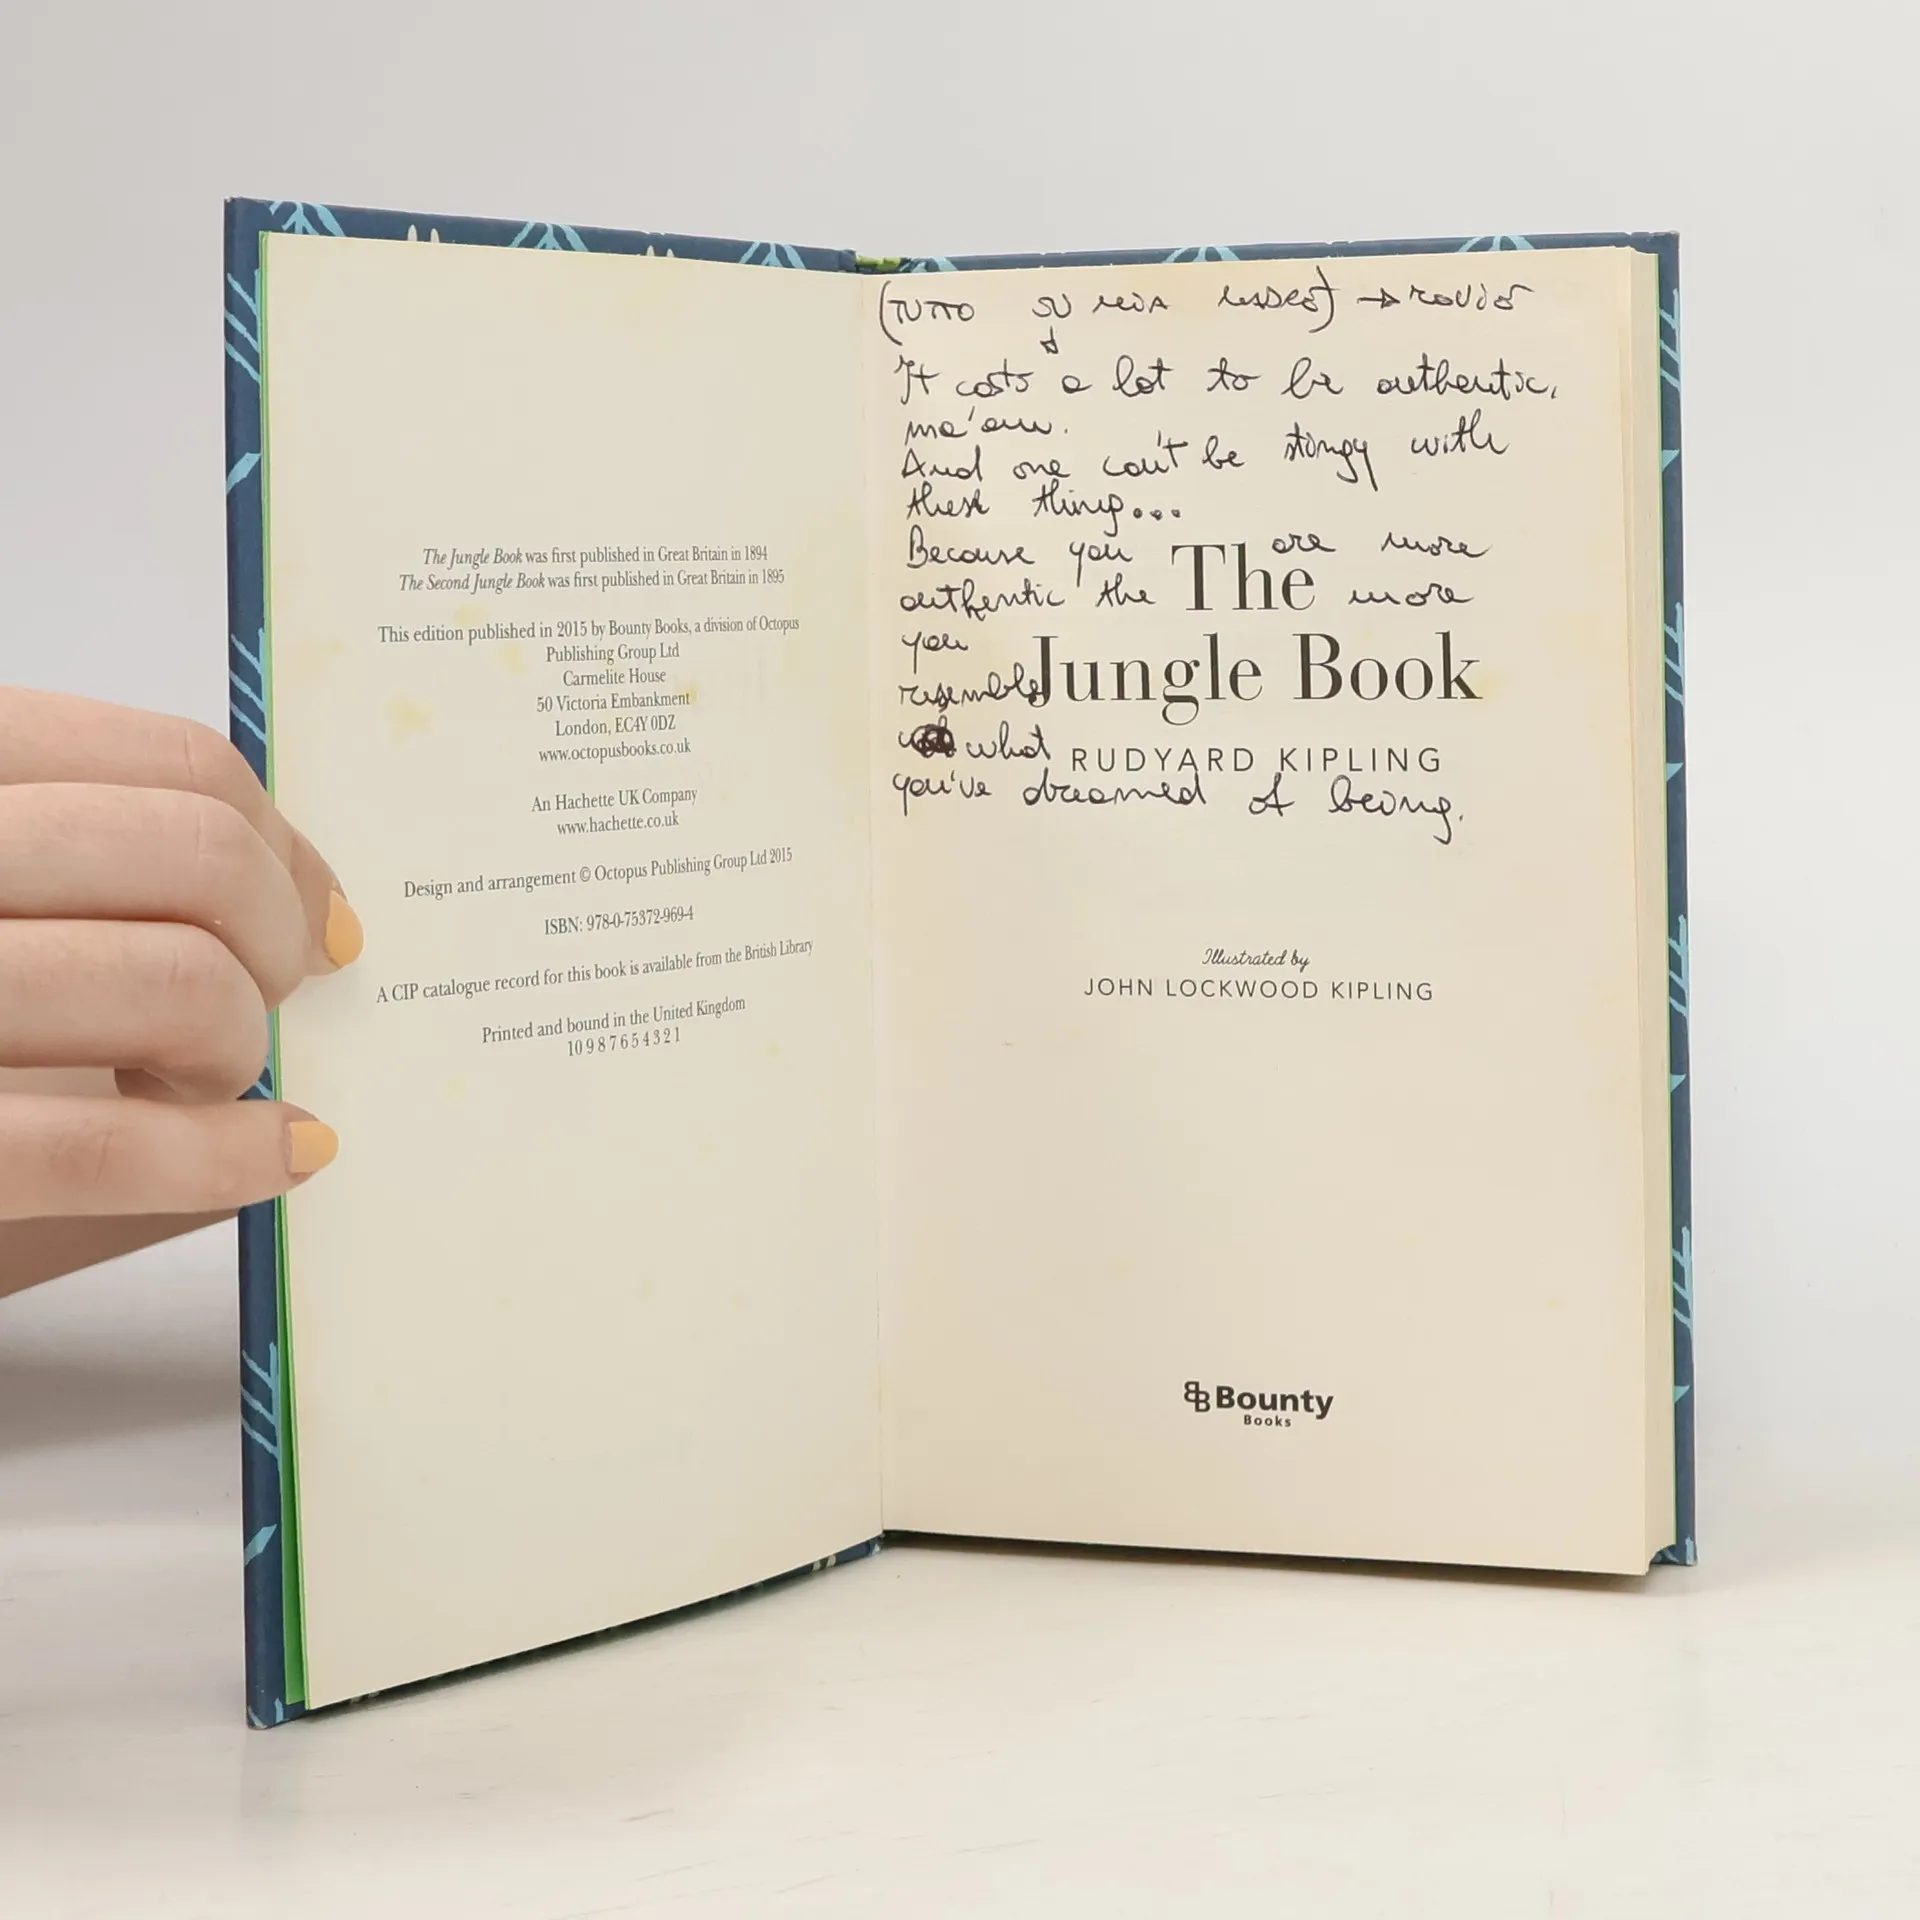 The Jungle Book was first published in Great Britain in 1894
The Second Jungle Book was first published in Great Britain in 1895
This edition published in 2015 by Bounty Books, a division of Octopus
Publishing Group Ltd
Carmelite House
50 Victoria Embankment
London, EC4Y 0DZ
www.octopusbooks.co.uk
An Hachette UK Company
www.hachette.co.uk
Design and arrangement © Octopus Publishing Group Ltd 2015
ISBN: 978-0-75372-969-4
A CIP catalogue record for this book is available from the British Library
Printed and bound in the United Kingdom
10 9 8 7 6 5 4 3 2 1
(TUTTO SU →
It costs a lot to be authentic,
ma'am.
And one can't be stingy with
these things...
Because you are more
authentic the more
you
resemble
what
you've dreamed of being.
The
Jungle Book
RUDYARD KIPLING
Illustrated by
JOHN LOCKWOOD KIPLING
BB Bounty
Books